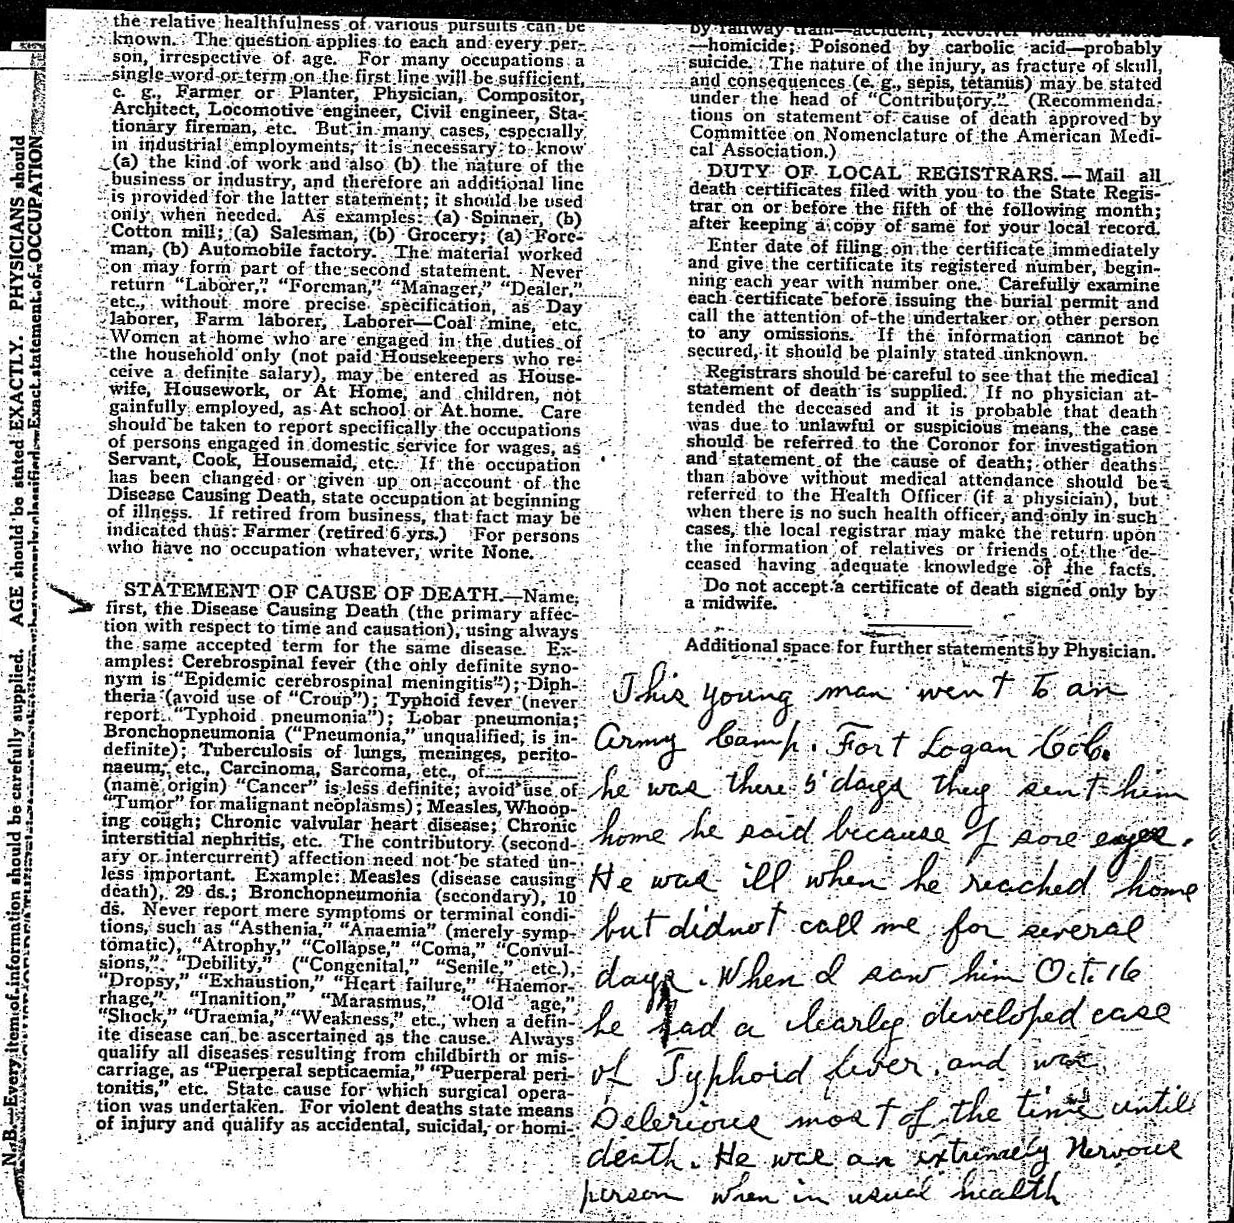 the relative healthfulness of various pursuits can be
known. The question applies to each and every per-
son, irrespective of age. For many occupations a
single word or term on the first line will be sufficient,
e. g., Farmer or Planter, Physician, Compositor,
Architect, Locomotive engineer, Civil engineer, Sta-
tionary fireman, etc. But in many cases, especially
in industrial employments, it is necessary to know
(a) the kind of work and also (b) the nature of the
business or industry, and therefore an additional line
is provided for the latter statement; it should be used
only when needed. As examples: (a) Spinner, (b)
Cotton mill; (a) Salesman, (b) Grocery; (a) Fore-
man, (b) Automobile factory. The material worked
on may form part of the second statement. Never
return "Laborer," "Foreman," "Manager," "Dealer,"
etc., without more precise specification, as Day
laborer, Farm laborer, Laborer—Coal mine, etc.
Women at home who are engaged in the duties of
the household only (not paid Housekeepers who re-
ceive a definite salary), may be entered as House-
wife, Housework, or At Home, and children, not
gainfully employed, as At school or At home. Care
should be taken to report specifically the occupations
of persons engaged in domestic service for wages, as
Servant, Cook, Housemaid, etc. If the occupation
has been changed or given up on account of the
Disease Causing Death, state occupation at beginning
of illness. If retired from business, that fact may be
indicated thus: Farmer (retired 6 yrs.) For persons
who have no occupation whatever, write None.
STATEMENT OF CAUSE OF DEATH.—Name,
first, the Disease Causing Death (the primary affec-
tion with respect to time and causation), using always
the same accepted term for the same disease. Ex-
amples: Cerebrospinal fever (the only definite syno-
nym is "Epidemic cerebrospinal meningitis"); Diph-
theria (avoid use of "Croup"); Typhoid fever (never
report "Typhoid pneumonia"); Lobar pneumonia;
Bronchopneumonia ("Pneumonia," unqualified, is in-
definite); Tuberculosis of lungs, meninges, perito-
naeum, etc., Carcinoma, Sarcoma, etc., of
(name origin) "Cancer" is less definite; avoid use of
"Tumor" for malignant neoplasms); Measles, Whoop-
ing cough; Chronic valvular heart disease; Chronic
interstitial nephritis, etc. The contributory (second-
ary or intercurrent) affection need not be stated un-
less important. Example: Measles (disease causing
death), 29 ds.; Bronchopneumonia (secondary), 10
ds. Never report mere symptoms or terminal condi-
tions, such as "Asthenia," "Anaemia" (merely symp-
tomatic), "Atrophy," "Collapse," "Coma," "Convul-
sions," "Debility," ("Congenital," "Senile," etc.),
"Dropsy," "Exhaustion," "Heart failure," "Haemor-
rhage," "Inanition," "Marasmus," "Old age,"
"Shock," "Uraemia," "Weakness," etc., when a defin-
ite disease can be ascertained as the cause. Always
qualify all diseases resulting from childbirth or mis-
carriage, as "Puerperal septicaemia," "Puerperal peri-
tonitis," etc. State cause for which surgical opera-
tion was undertaken. For violent deaths state means
of injury and qualify as accidental, suicidal, or homi-
by railway train—accident; Revolver wound of head
—homicide; Poisoned by carbolic acid—probably
suicide. The nature of the injury, as fracture of skull,
and consequences (e. g., sepis, tetanus) may be stated
under the head of "Contributory." (Recommenda-
tions on statement of cause of death approved by
Committee on Nomenclature of the American Medi-
cal Association.)
DUTY OF LOCAL REGISTRARS.—Mail all
death certificates filed with you to the State Regis-
trar on or before the fifth of the following month;
after keeping a copy of same for your local record.
Enter date of filing on the certificate immediately
and give the certificate its registered number, begin-
ning each year with number one. Carefully examine
each certificate before issuing the burial permit and
call the attention of the undertaker or other person
to any omissions. If the information cannot be
secured, it should be plainly stated unknown.
Registrars should be careful to see that the medical
statement of death is supplied. If no physician at-
tended the deceased and it is probable that death
was due to unlawful or suspicious means, the case
should be referred to the Coronor for investigation
and statement of the cause of death; other deaths
than above without medical attendance should be
referred to the Health Officer (if a physician), but
when there is no such health officer, and only in such
cases, the local registrar may make the return upon
the information of relatives or friends of the de-
ceased having adequate knowledge of the facts.
Do not accept a certificate of death signed only by
a midwife.
Additional space for further statements by Physician.
This young man went to an
Army Camp. Fort Logan Col.
he was there 5 days they sent him
home he said because of sore eyes.
He was ill when he reached home
but didnot call me for several
days. When I saw him Oct. 16
he had a clearly developed case
of Typhoid fever. and was
Delerious most of the time until
death. He was an extremely Nervous
person when in usual health
N. B.—Every item of information should be carefully supplied. AGE should be stated EXACTLY. PHYSICIANS should
classified. Exact statement of OCCUPATION